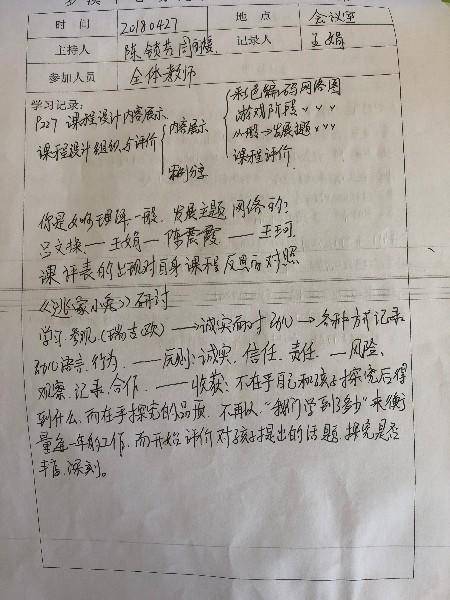 时 间 20180427 地 点 会议室
主持人 陈 记录人 王娟
参加人员 全体教师
学习记录:
P227 课程设计内容展示
课程设计组织与评价
内容展示
案例分享
彩色编码网络图
游戏阶段 〃 〃
一般→发展主题 〃〃〃
课程评价
你是如何理解一般、发展主题网络的?
吕文操——王娟——陈霞——王珂
课评表的出现对自身课程反思与对照
研讨
学习、参观(瑞吉欧)——→诚实面对幼儿→各种方式记录
幼儿语言、行为——反则:诚实、信任、责任——风险、
观察、记录、合作——收获:不在乎自己和孩子探究后得
到什么,而在乎探究的品质,不再以“我们学到了多少”来衡
量每一年的工作,而开始评价对孩子提出的话题,探究是否
丰富、深刻。